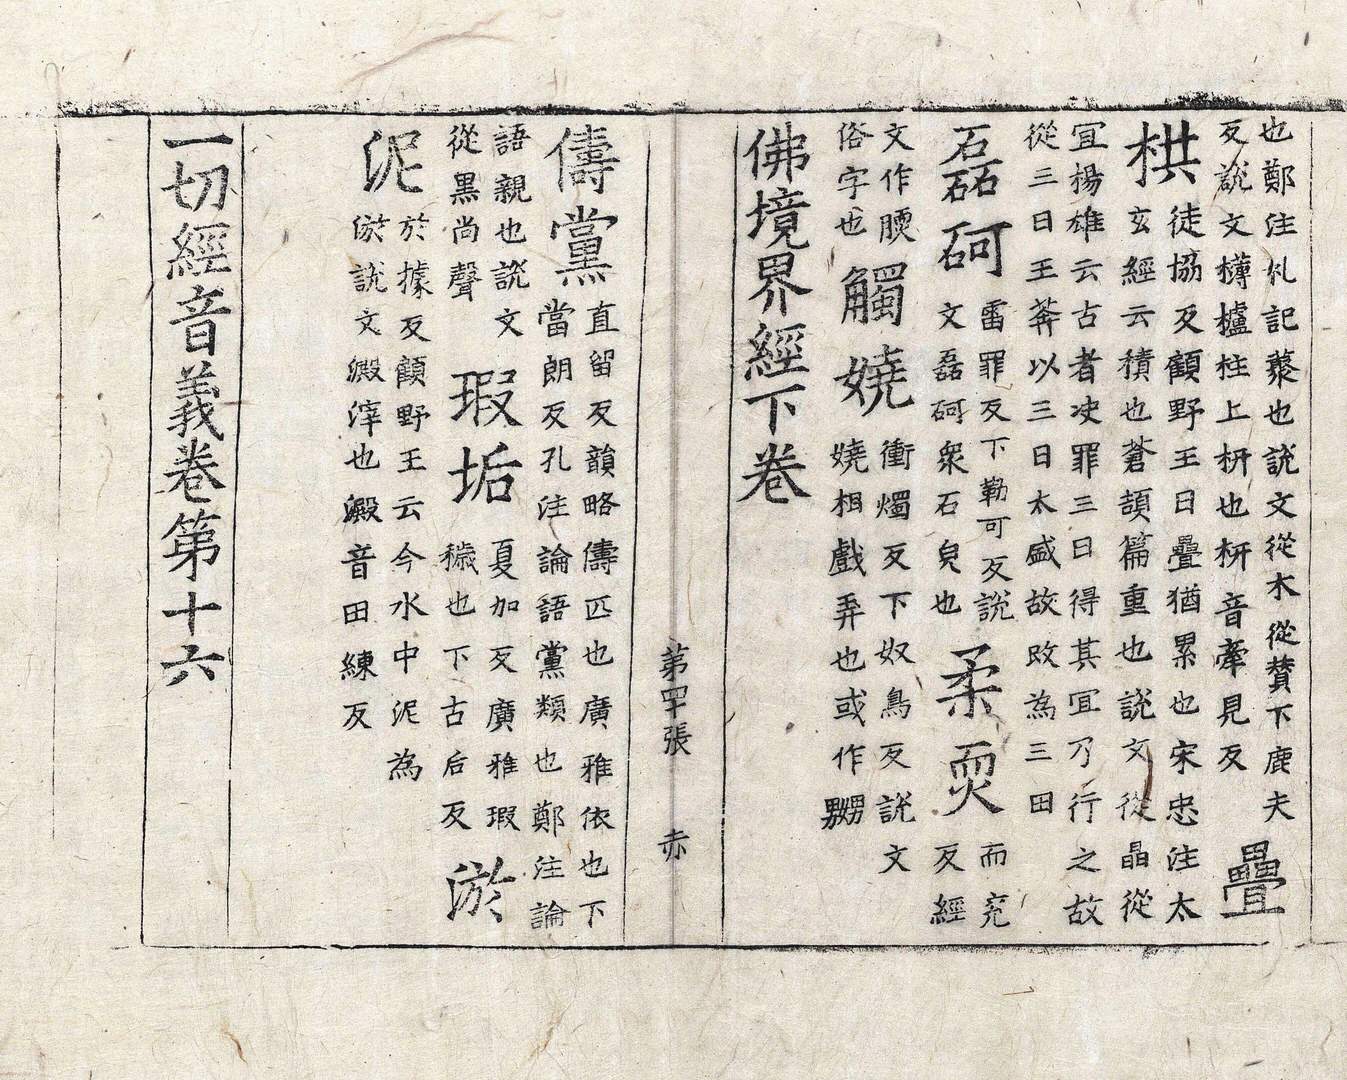 也鄭注礼記藂也説文從木從賛下鹿夫
反説文欂櫨柱上枅也枅音牽見反
疊
栱
徒協反顧野王曰疊猶累也宋忠注太
玄經云積也蒼頡篇重也説文從晶從
宜楊雄云古者决罪三日得其宜乃行之故
從三日王莽以三日太盛故改為三田
磊砢
雷罪反下勒可反説
文磊砢衆石皃也
柔耎
而兖
反經
文作腝
俗字也
觸嬈
衝燭反下奴鳥反説文
嬈相戲弄也或作嬲
佛境界經下卷
第四十張 赤
儔黨
直留反韻略儔匹也廣雅依也下
當朗反孔注論語黨類也鄭注論
語親也説文
從黑尚聲
瑕垢
夏加反廣雅瑕
穢也下古后反
淤
泥
於據反顧野王云今水中泥為
淤説文澱滓也澱音田練反
一切經音義卷第十六